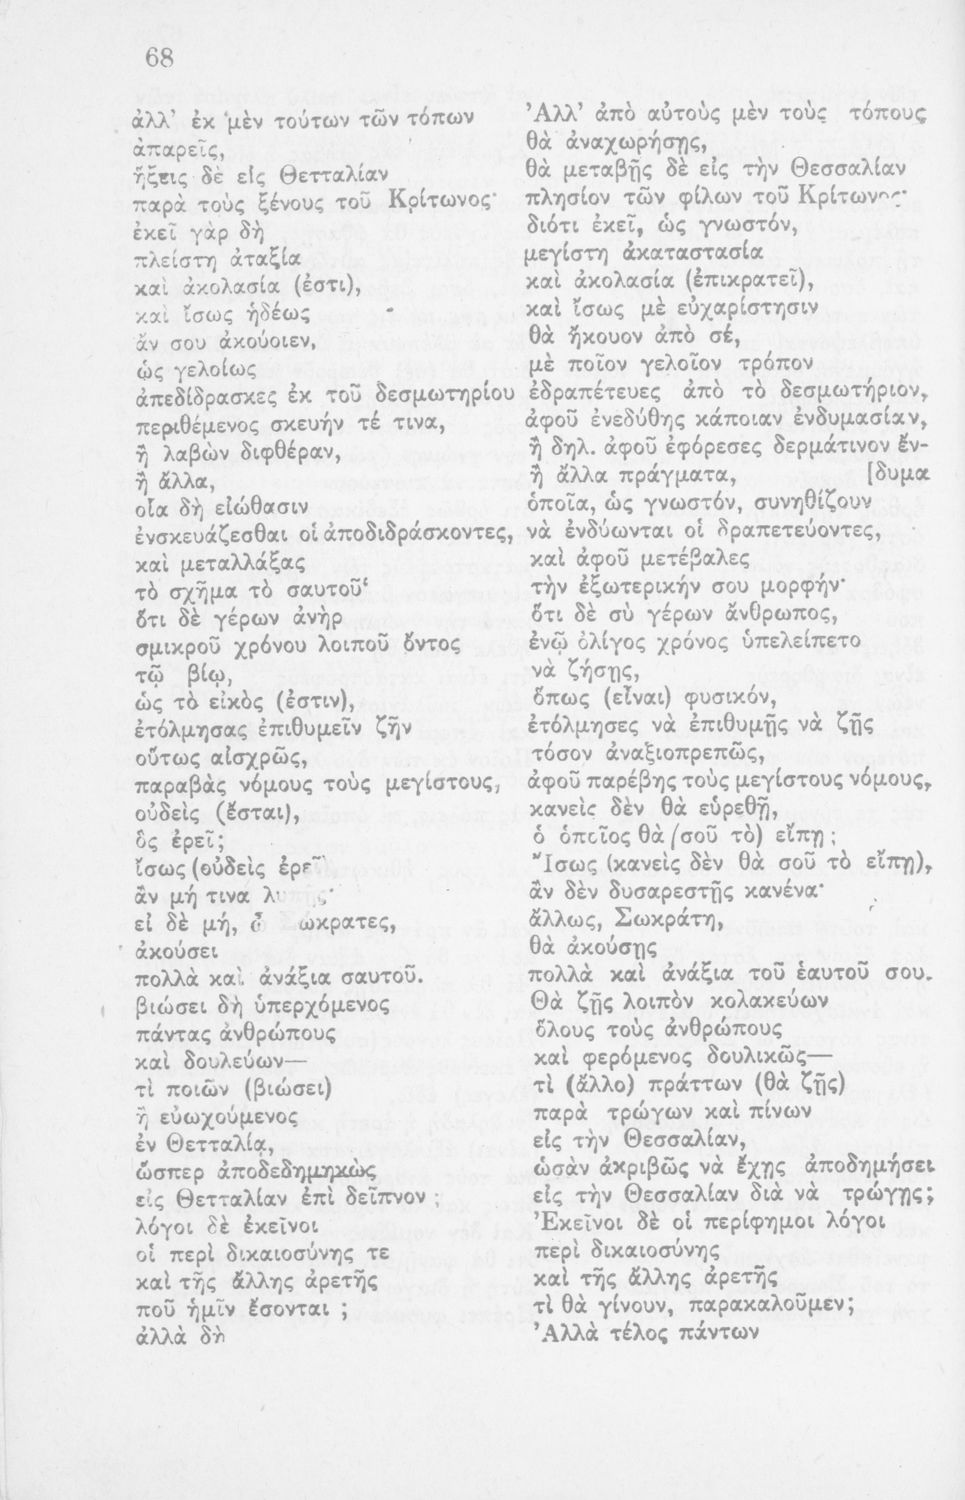 68
ἀλλ' ἐκ μὲν τούτων τῶν τόπων
ἀπαρεῖς,
ἥξεις δὲ εἰς Θετταλίαν
παρὰ τοὺς ξένους τοῦ Κρίτωνος·
ἐκεῖ γὰρ δὴ
πλείστη ἀταξία
καὶ ἀκολασία (ἐστι),
καὶ ἴσως ἡδέως
ἄν σου ἀκούοιεν,
ὡς γελοίως
ἀπεδίδρασκες ἐκ τοῦ δεσμωτηρίου
περιθέμενος σκευήν τέ τινα,
ἢ λαβὼν διφθέραν,
ἢ ἄλλα,
οἷα δὴ εἰώθασιν
ἐνσκευάζεσθαι οἱ ἀποδιδράσκοντες,
καὶ μεταλλάξας
τὸ σχῆμα τὸ σαυτοῦ·
ὅτι δὲ γέρων ἀνὴρ
σμικροῦ χρόνου λοιποῦ ὄντος
τῷ βίῳ,
ὡς τὸ εἰκὸς (ἐστιν),
ἐτόλμησας ἐπιθυμεῖν ζῆν
οὕτως αἰσχρῶς,
παραβὰς νόμους τοὺς μεγίστους,
οὐδεὶς (ἔσται),
ὃς ἐρεῖ;
ἴσως (οὐδεὶς ἐρεῖ)
ἂν μή τινα λυπῇς·
εἰ δὲ μή, ὦ Σώκρατες,
ἀκούσει
πολλὰ καὶ ἀνάξια σαυτοῦ.
βιώσει δὴ ὑπερχόμενος
πάντας ἀνθρώπους
καὶ δουλεύων—
τὶ ποιῶν (βιώσει)
ἢ εὐωχούμενος
ἐν Θετταλίᾳ,
ὥσπερ ἀποδεδημηκὼς
εἰς Θετταλίαν ἐπὶ δεῖπνον;
λόγοι δὲ ἐκεῖνοι
οἱ περὶ δικαιοσύνης τε
καὶ τῆς ἄλλης ἀρετῆς
ποῦ ἡμῖν ἔσονται ;
ἀλλὰ δὴ
'Αλλ' ἀπὸ αὐτοὺς μὲν τοὺς τόπους
θὰ ἀναχωρήσῃς,
θὰ μεταβῇς δὲ εἰς τὴν Θεσσαλίαν
πλησίον τῶν φίλων τοῦ Κρίτωνος·
διότι ἐκεῖ, ὡς γνωστόν,
μεγίστη ἀκαταστασία
καὶ ἀκολασία (ἐπικρατεῖ),
καὶ ἴσως μὲ εὐχαρίστησιν
θὰ ἤκουον ἀπὸ σέ,
μὲ ποῖον γελοῖον τρόπον
ἐδραπέτευες ἀπὸ τὸ δεσμωτήριον,
ἀφοῦ ἐνεδύθης κάποιαν ἐνδυμασίαν,
ἢ δηλ. ἀφοῦ ἐφόρεσες δερμάτινον ἔν-
ἢ ἄλλα πράγματα, [δυμα
ὁποῖα, ὡς γνωστόν, συνηθίζουν
νὰ ἐνδύωνται οἱ δραπετεύοντες,
καὶ ἀφοῦ μετέβαλες
τὴν ἐξωτερικήν σου μορφήν·
ὅτι δὲ σὺ γέρων ἄνθρωπος,
ἐνῷ ὀλίγος χρόνος ὑπελείπετο
νὰ ζήσῃς,
ὅπως (εἶναι) φυσικόν,
ἐτόλμησες νὰ ἐπιθυμῇς νὰ ζῇς
τόσον ἀναξιοπρεπῶς,
ἀφοῦ παρέβης τοὺς μεγίστους νόμους,
κανεὶς δὲν θὰ εὑρεθῇ,
ὁ ὁποῖος θὰ (σοῦ τὸ) εἴπῃ;
Ἴσως (κανεὶς δὲν θὰ σοῦ τὸ εἴπῃ),
ἂν δὲν δυσαρεστῇς κανένα·
ἄλλως, Σωκράτη,
θὰ ἀκούσῃς
πολλὰ καὶ ἀνάξια τοῦ ἑαυτοῦ σου.
Θὰ ζῇς λοιπὸν κολακεύων
ὅλους τοὺς ἀνθρώπους
καὶ φερόμενος δουλικῶς—
τὶ (ἄλλο) πράττων (θὰ ζῇς)
παρὰ τρώγων καὶ πίνων
εἰς τὴν Θεσσαλίαν,
ὡσὰν ἀκριβῶς νὰ ἔχῃς ἀποδημήσει
εἰς τὴν Θεσσαλίαν διὰ νὰ τρώγῃς;
'Εκεῖνοι δὲ οἱ περίφημοι λόγοι
περὶ δικαιοσύνης
καὶ τῆς ἄλλης ἀρετῆς
τὶ θὰ γίνουν, παρακαλοῦμεν;
'Αλλὰ τέλος πάντων